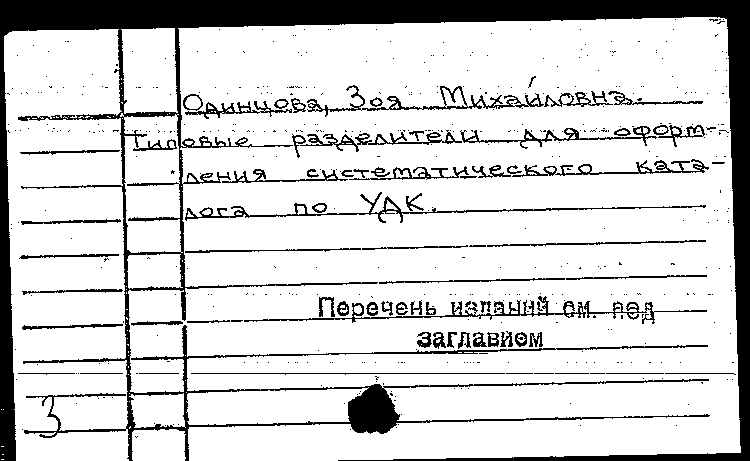 Одинцова, Зоя Михайловна.
Типовые разделители для оформ-
ления систематического ката-
лога по УДК.
Перечень изданий см. под
заглавием
3